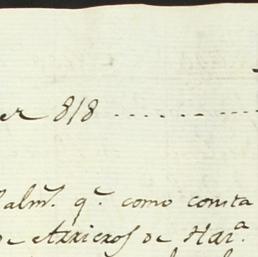 er 818 ..........
alm.^s q.^e como consta
de Arrieros de Har.^a